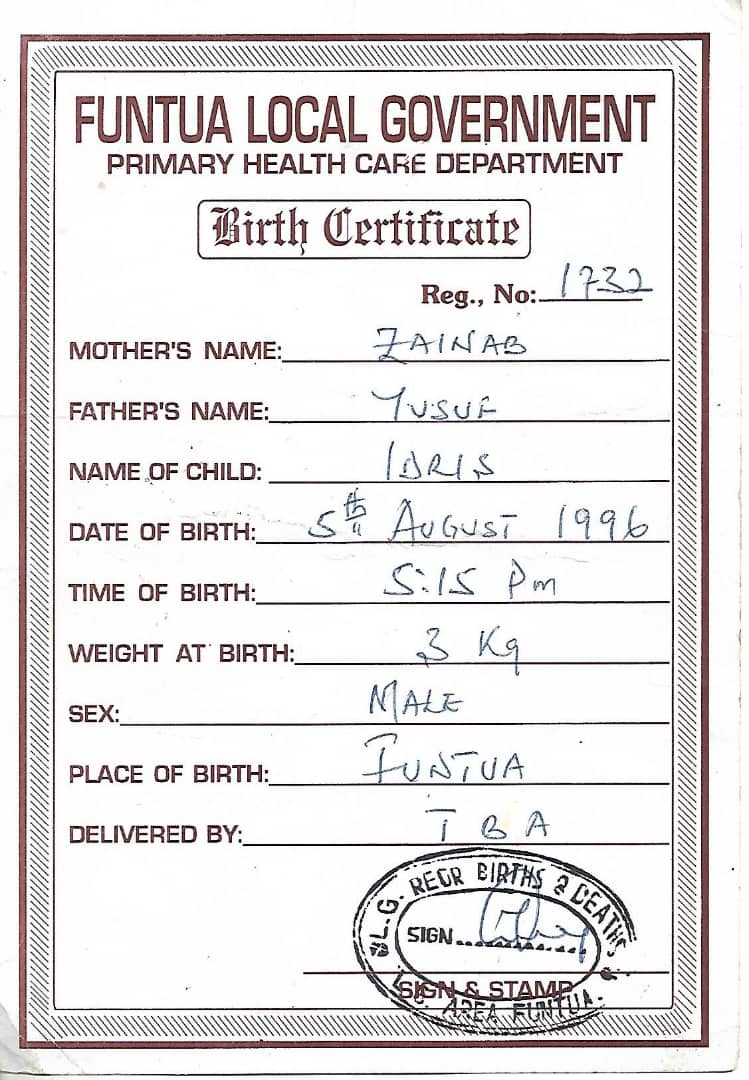 FUNTUA LOCAL GOVERNMENT
PRIMARY HEALTH CARE DEPARTMENT
Birth Certificate
Reg., No: 1732
MOTHER'S NAME: ZAINAB
FATHER'S NAME: YUSUF
NAME OF CHILD: IDRIS
DATE OF BIRTH: 5th AUGUST 1996
TIME OF BIRTH: 5:15 Pm
WEIGHT AT BIRTH: 3 Kg
SEX: MALE
PLACE OF BIRTH: FUNTUA
DELIVERED BY: T B A
L.G. REGR BIRTHS & DEATHS
SIGN
SIGN & STAMP
AREA FUNTUA